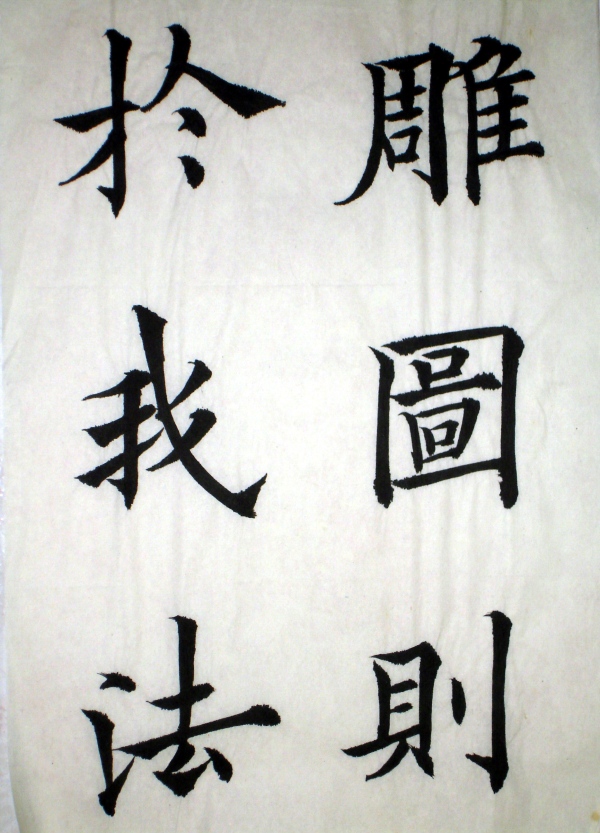 雕圖則
於我法